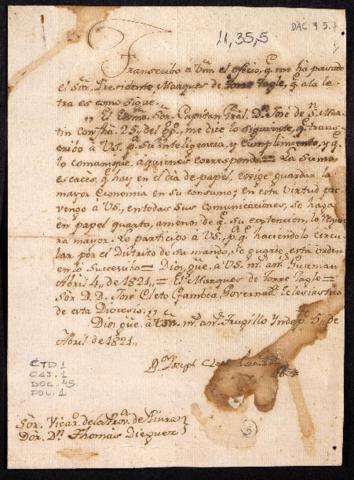 11,35,5
DAC 9 5.7
Transcribo a Vm el oficio, q. me ha pasado
el Sor. Presidente Marques de Torre Tagle, q. a la le-
tra es como sigue.
" El Exmo. Sor. Capitan Gral. D. José de Sn. Mar-
tin con fha. 25. del pp. me dice lo siguiente, q. trans-
cribo à VS. pa. su inteligencia, y cumplimiento, y q.
lo comunique, a quienes corresponda = La suma
escacès, q. hay en el dia de papel, exige guardar la
mayor economia en su consumo; en esta virtud pre-
vengo à VS., en todas sus comunicaciones, se haga
en papel quarto, a meno. de q. su extencion, lo
ra mayor. Lo participo à VS. pa. q. haciendolo circu-
lar por el distrito de su mando, se guarde esta orden
en lo succesivo = Dios gue. à VS. ms. as. Huaman
Abril 4, de 1821, = El Marques de Torre Tagle =
Sor. D. D. José Cleto Gamboa, Governador Eclesiastico
de esta Diocesis. "
Dios gue. à Vm. ms. as. Truxillo Indepte. 5, de
Abril de 1821.
Joseph Cleto
CTD. 1
DOC. 45
FOL. 1
Sor. Vicario. de la Prova. de Piura
Dor. Dn. Thomas Dieguez